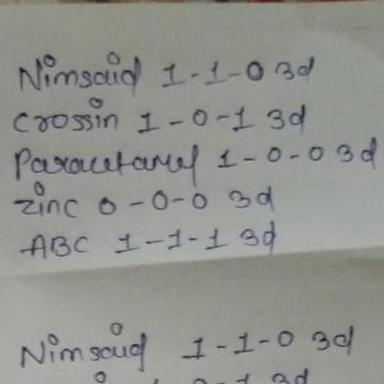 Nimsaid 1-1-0 3d
Crossin 1-0-1 3d
Paracetamol 1-0-0 3d
Zinc 0-0-0 3d
ABC 1-1-1 3d
Nimsaid 1-1-0 3d